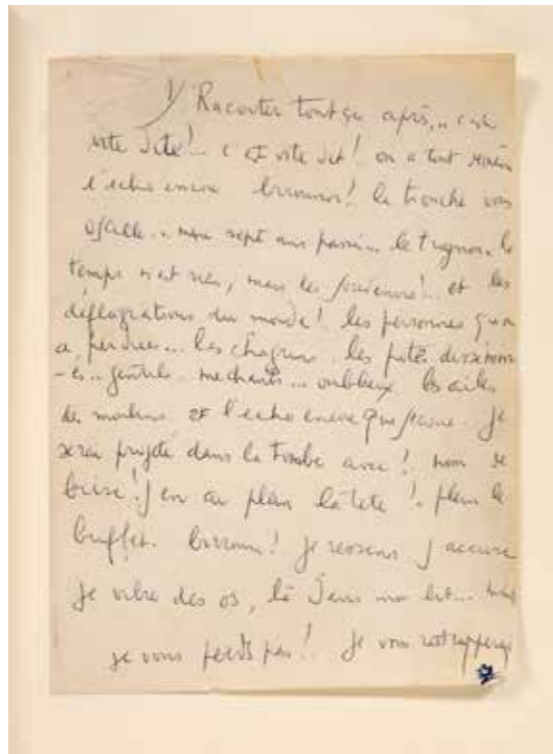 1/ Raconter tout ça après... c'est
vite dit!.. c'est vite dit! on a tout
l'écho encore brroumm! la tronche vous
oscille.. même sept ans passés.. le trognon.. le
temps n'est rien, mais les souvenirs!.. et les
déflagrations du monde! les personnes qu'on
a perdues... les chagrins.. les potes disséminés
-és.. gentils.. méchants... oublieux les ailes
des moulins et l'écho encore qui Je
serai projeté dans la tombe avec! nom de
brise! j'en ai plein la tête!.. plein le
buffet. brroum! je ressens j'accuse
je vibre des os, là dans mon lit... mais
je vous perds pas! Je vous rattraperai